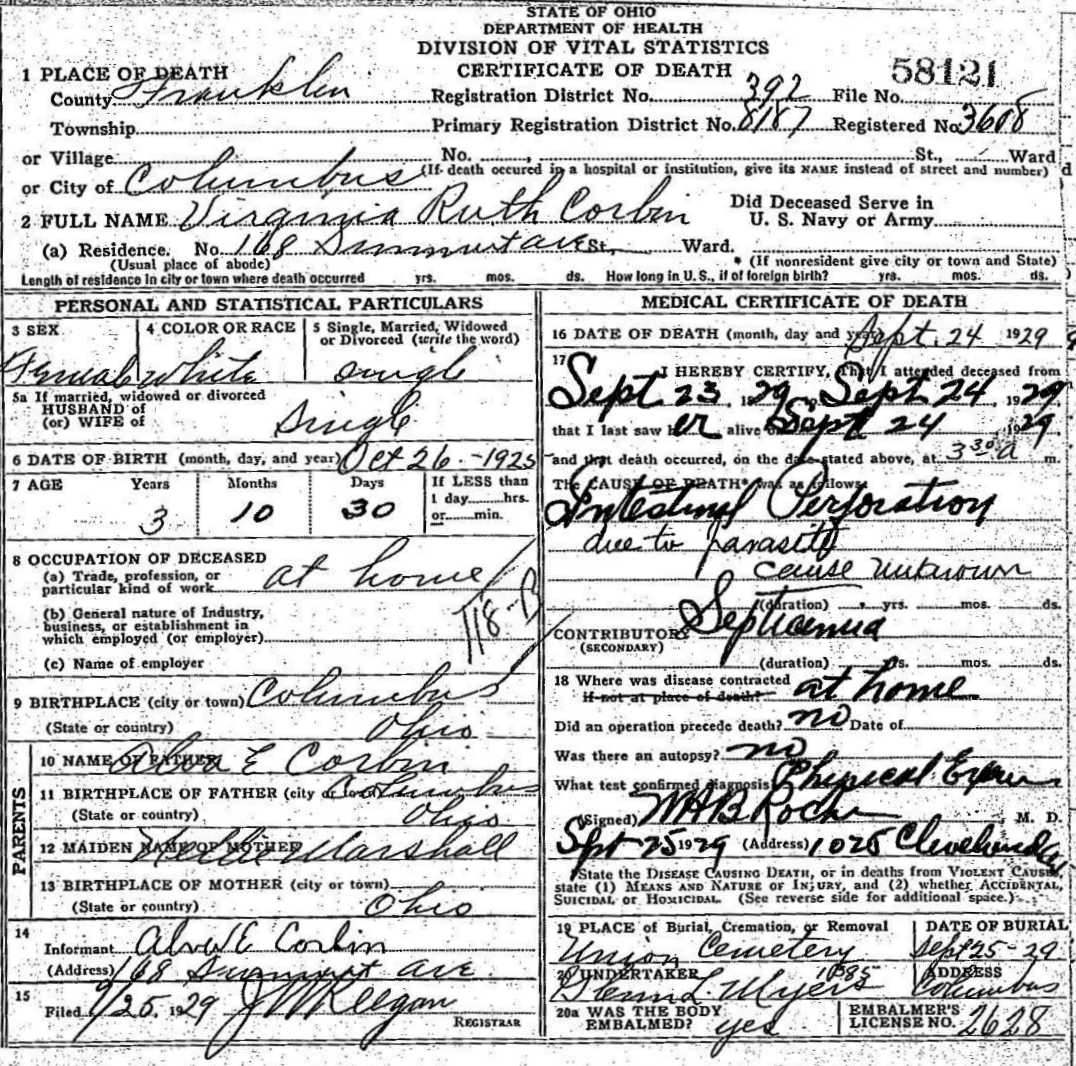 STATE OF OHIO
DEPARTMENT OF HEALTH
DIVISION OF VITAL STATISTICS
CERTIFICATE OF DEATH
58121
1 PLACE OF DEATH
County Franklin Registration District No. 392 File No.
Township Primary Registration District No. 8187 Registered No 3608
or Village No. , St., Ward
(If death occured in a hospital or institution, give its NAME instead of street and number)
or City of Columbus
2 FULL NAME Virginia Ruth Corbin Did Deceased Serve in U. S. Navy or Army
(a) Residence. No. 168 ave St. Ward.
(Usual place of abode) (If nonresident give city or town and State)
Length of residence in city or town where death occurred yrs. mos. ds. How long in U. S., if of foreign birth? yrs. mos. ds.
PERSONAL AND STATISTICAL PARTICULARS
3 SEX 4 COLOR OR RACE 5 Single, Married, Widowed or Divorced (write the word)
Female white single
5a If married, widowed or divorced
HUSBAND of
(or) WIFE of single
6 DATE OF BIRTH (month, day, and year) Oct 26 - 1925
7 AGE Years Months Days If LESS than
1 day hrs.
or min.
3 10 30
8 OCCUPATION OF DECEASED
(a) Trade, profession, or
particular kind of work at home
(b) General nature of Industry,
business, or establishment in
which employed (or employer)
(c) Name of employer
9 BIRTHPLACE (city or town) Columbus
(State or country) Ohio
PARENTS
10 NAME OF FATHER Alva E Corbin
11 BIRTHPLACE OF FATHER (city or town) Columbus
(State or country) Ohio
12 MAIDEN NAME OF MOTHER Nellie Marshall
13 BIRTHPLACE OF MOTHER (city or town)
(State or country) Ohio
14
Informant Alva E Corbin
(Address) 168 ave
15
Filed 9/25. 1929 J Keegan
REGISTRAR
MEDICAL CERTIFICATE OF DEATH
16 DATE OF DEATH (month, day and year) Sept. 24 1929
17 I HEREBY CERTIFY, That I attended deceased from
Sept 23 1929 Sept 24 1929
that I last saw her alive on Sept 24 1929
and that death occurred, on the date stated above, at 3 30 a m.
The CAUSE OF DEATH* was as follows:
Intestinal Perforation
due to parasite
cause unknown
(duration) yrs. mos. ds.
CONTRIBUTORY Septicemia
(SECONDARY)
(duration) yrs. mos. ds.
18 Where was disease contracted
if not at place of death? at home
Did an operation precede death? no Date of
Was there an autopsy? no
What test confirmed diagnosis Physical Exam
(Signed) M. D.
Sept 25 1929 (Address) 1025 Cleveland Av
State the DISEASE CAUSING DEATH, or in deaths from VIOLENT CAUSES,
state (1) MEANS AND NATURE OF INJURY, and (2) whether ACCIDENTAL,
SUICIDAL or HOMICIDAL. (See reverse side for additional space.)
19 PLACE of Burial, Cremation, or Removal DATE OF BURIAL
Union Cemetery Sept 25 - 29
20 UNDERTAKER ADDRESS
Glenn L. Myers Columbus
20a WAS THE BODY
EMBALMED? yes
EMBALMER'S
LICENSE NO. 2628